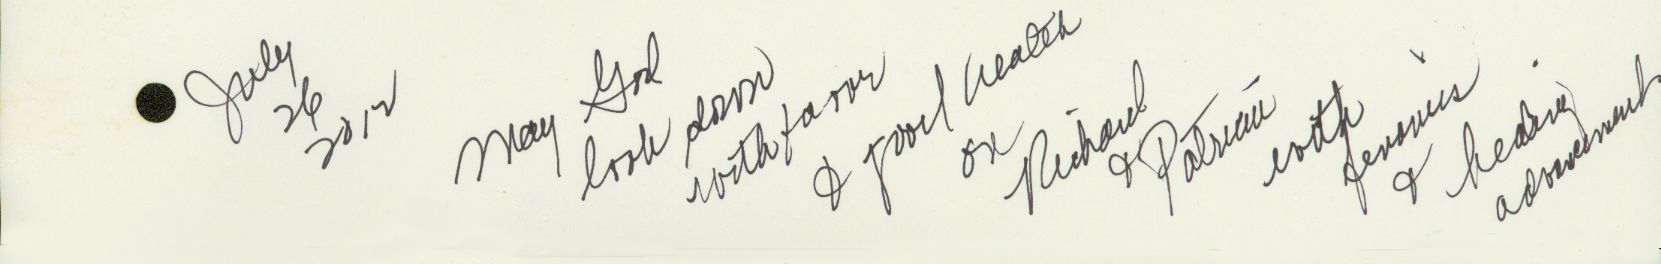 July
26
2012
May God
look down
with favor
& good health
on
Richard
& Patricia
with
& healing
advancement